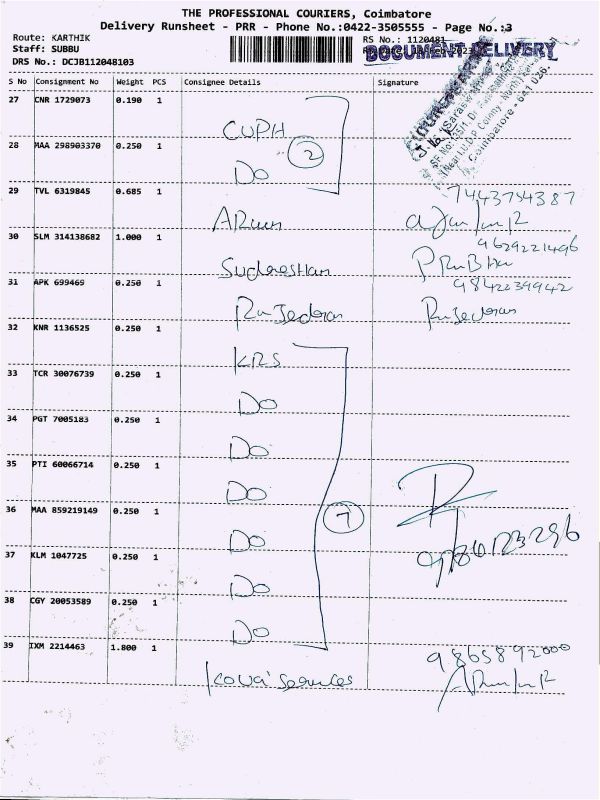 THE PROFESSIONAL COURIERS, Coimbatore
Delivery Runsheet - PRR - Phone No.:0422-3505555 - Page No.:3
Route: KARTHIK
Staff: SUBBU
DRS No.: DCJB112048103
RS No.: 1120481
DOCUMENT DELIVERY
Coimbatore - 641 026.
S No Consignment No Weight PCS Consignee Details Signature
27 CNR 1729073 0.190 1
CUPH
28 MAA 298903370 0.250 1
2
Do
7443754387
29 TVL 6319845 0.685 1
Arun
9629221496
30 SLM 314138682 1.000 1
Sudareshan
9842239942
31 APK 699469 0.250 1
Rajedran Rajedran
32 KNR 1136525 0.250 1
KRS
33 TCR 30076739 0.250 1
Do
34 PGT 7005183 0.250 1
Do
35 PTI 60066714 0.250 1
Do
36 MAA 859219149 0.250 1
7
Do
37 KLM 1047725 0.250 1
Do
38 CGY 20053589 0.250 1
Do
39 IXM 2214463 1.800 1
9865892000
Kovai Services